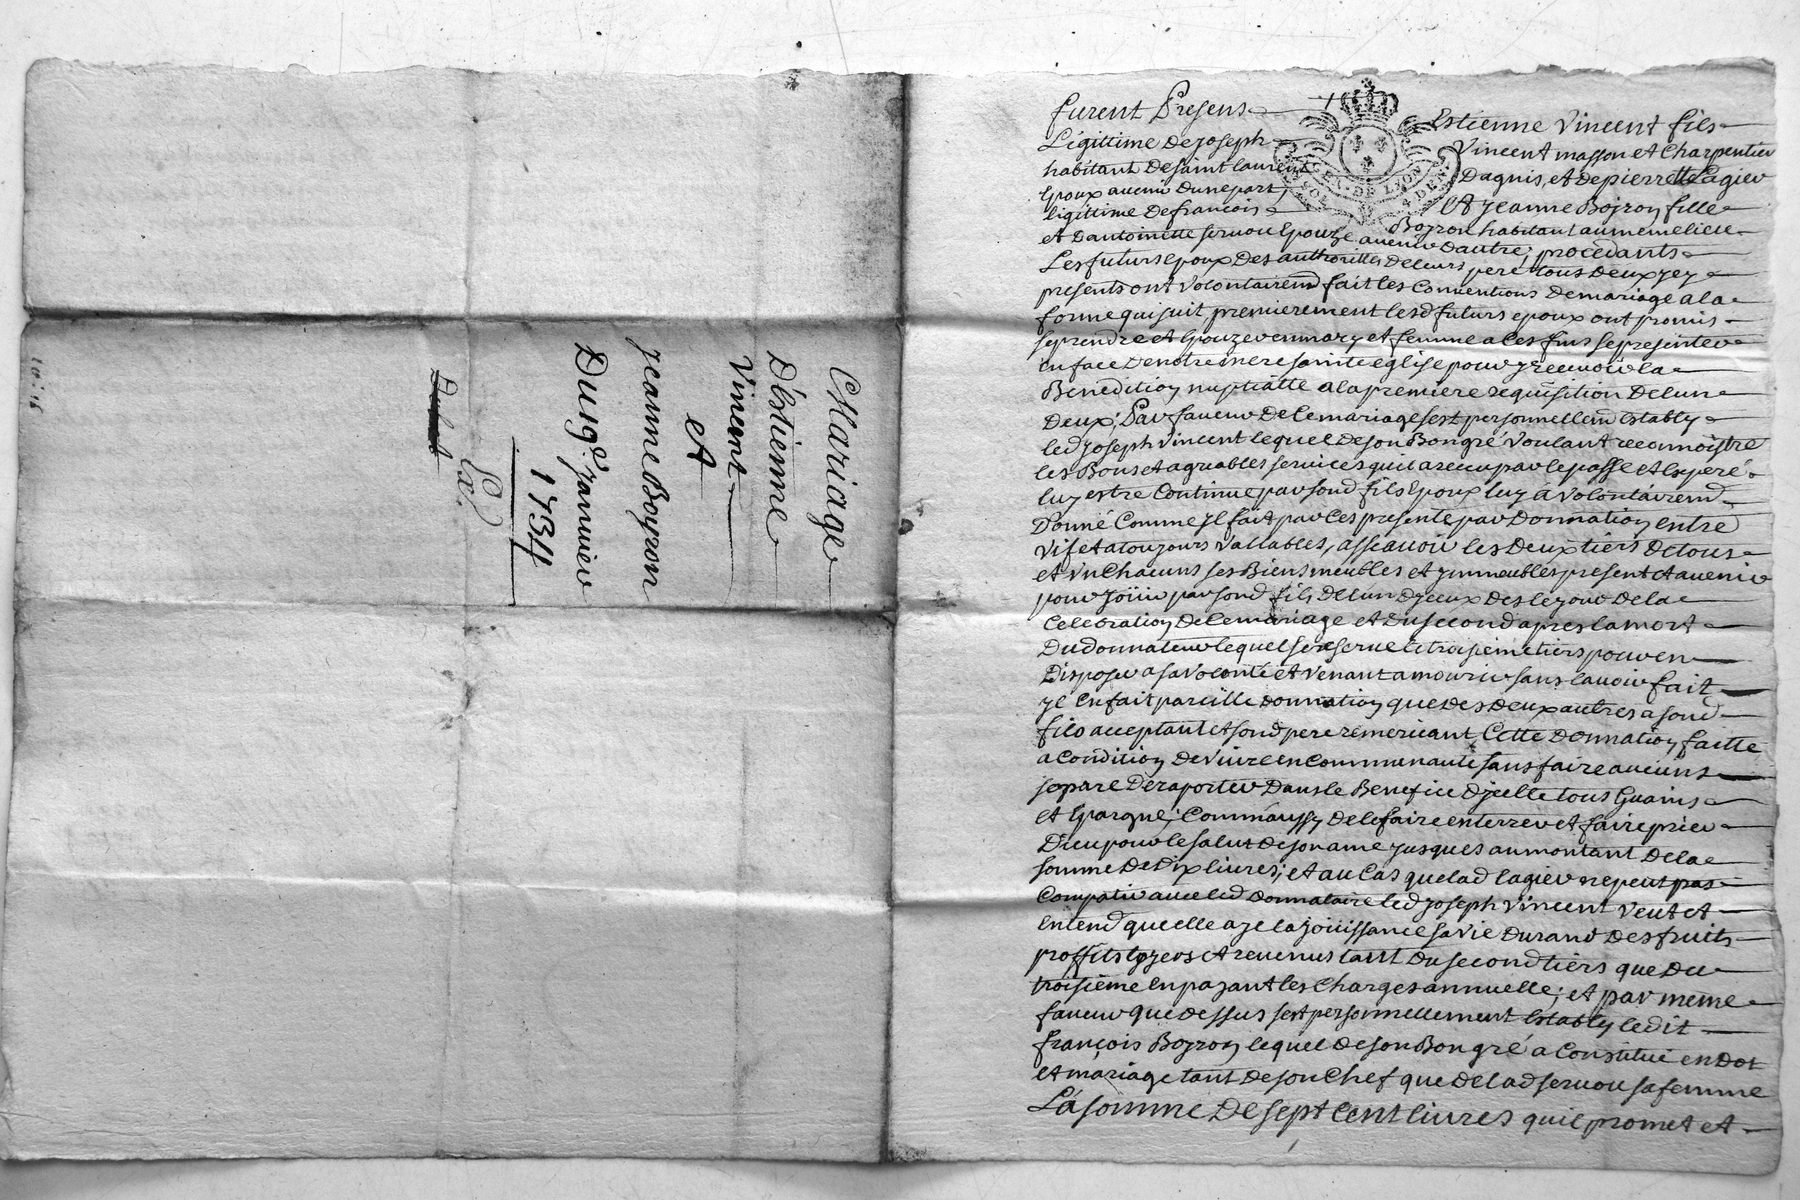 Mariage
D'Estienne
Vincent
et
jeanne Boyron
Du 19e janvier
1734
Ex.
furent Presens Estienne Vincent fils
Légittime de Joseph Vincent masson et Charpentier
habitant de saint laurent Dagnis, et de pierrette Lagier
Epoux avenir dunepart, Et jeanne Boyron fille
ligittime de francois Boyron habitant au meme lieu
et Dantoinette servou Epouze avenir Dautre; procedants
Les futurs epoux Des authorittés de leurs pere tous Deux jey
presents ont Volontairemd fait les Conventions De mariage a la
forme qui suit premierement lesd futurs epoux ont promis
se prendre et Epouzer en mary et femme a ces fins se presenter
en face De notre mere sainte eglise pour y recevoir la
Benediction nuptialle a la premiere requisition De lun
Deux; Par faveur De ce mariage sest personnellemd Estably
led Joseph Vincent lequel de son Bon gré voulant reconnoistre
les Bons et agreables services quil a receu par le passe et Espere
luy estre Continue par sond fils Epoux luy a volontairemd
Donné Comme jl fait par ces presente par Donnation entre
vif et a toujours vallables, asseavoir les Deux tiers de tous
et vn Chacuns ses Biens meubles et jmmeubles present et avenir
pour joüir par sond fils De lun Djceux Des le jour De la
Celebration De ce mariage et Du second apres la mort
Du donnateur lequel se reserve le troisieme tiers pour en
Disposer a sa volonté et venant a mourir sans lavoir fait
jl en fait pareille donnation que Des Deux autres a sond
fils acceptant et sond pere remerciant, Cette Donnation faitte
a Condition De vivre en Communauté sans faire aucuns
separe De raporter Dans le Benefice Djcelle tous Guains
et Epargne; Comm'aussy De le faire enterrer et faire prier
Dieu pour le salut de son ame jusques au montant De la
somme De Dix livres; et au Cas que lad lagier ne peut pas
Compatir avec led Donnataire led Joseph Vincent veut et
entend quelle aje la jouissance sa vie Durand Des fruits
proffits loyers et revenus tant Du second tiers que Du
troisieme en payant les Charges annuelle; et par meme
faveur que dessus sest personnellement Estably ledit
françois Boyron lequel De son Bon gré a Constitué en Dot
et mariage tant De son Chef que De lad servou sa femme
La somme De sept Cent livres quil promet et